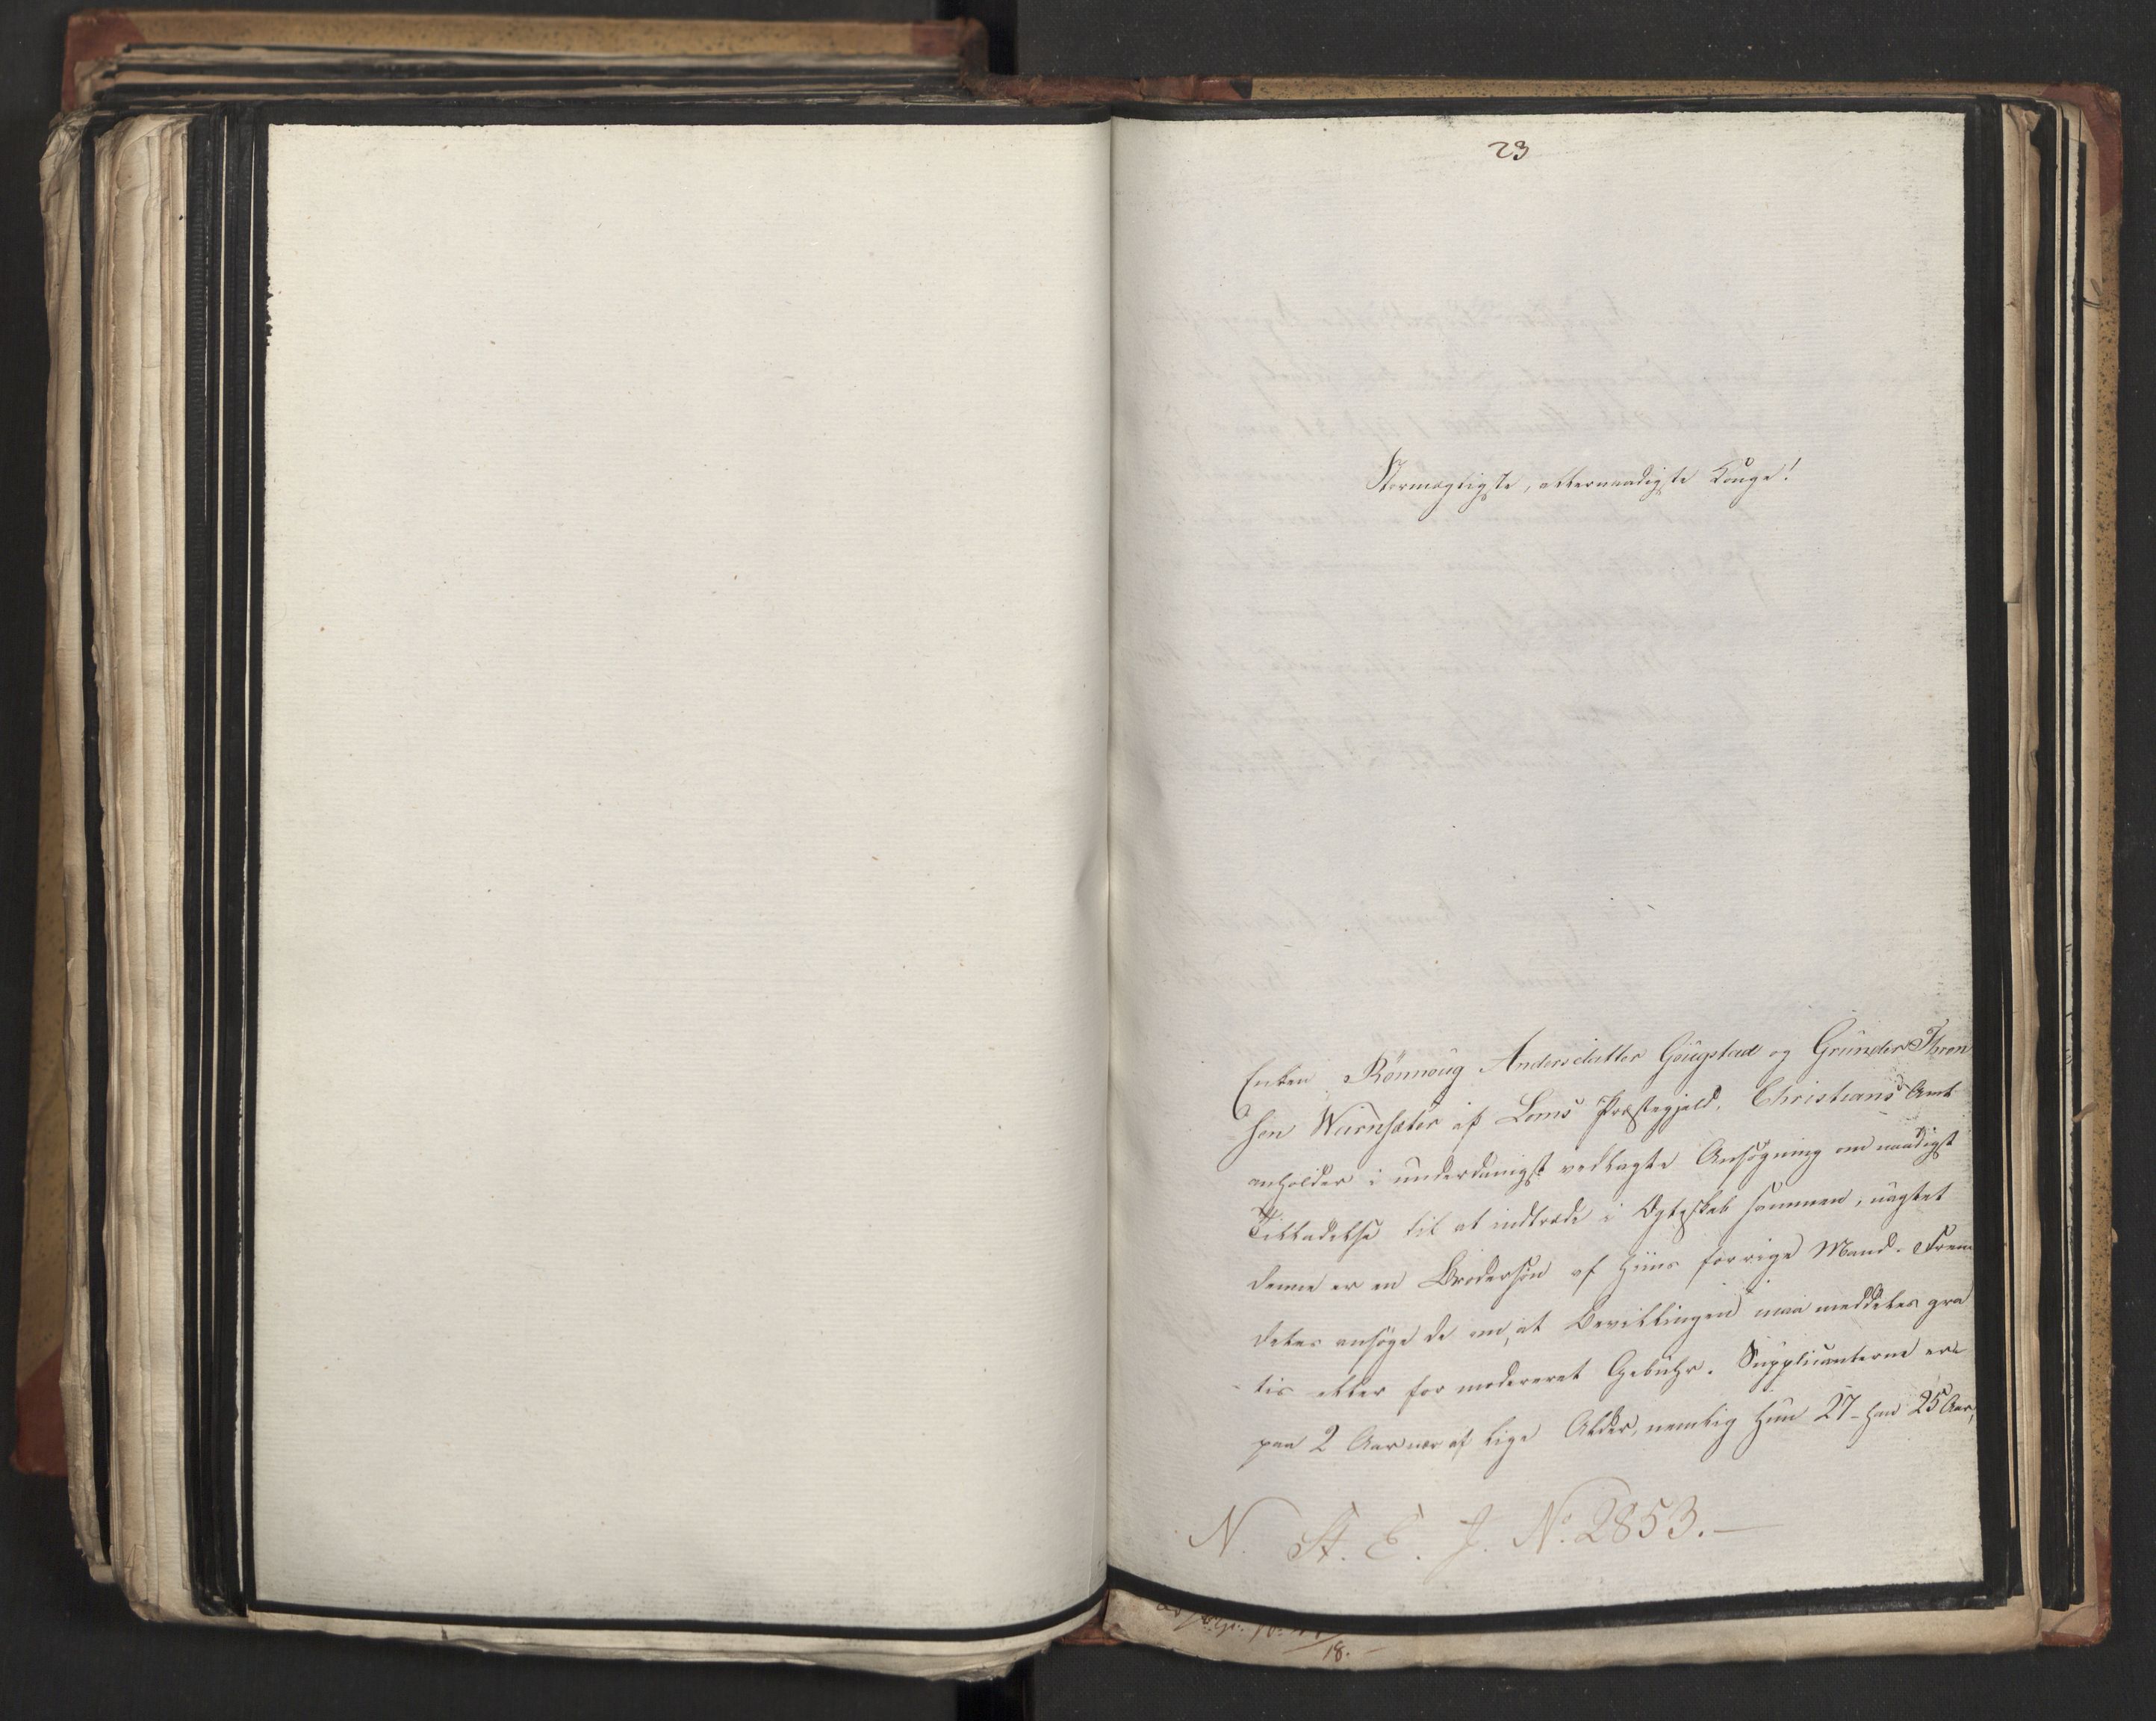 23
Stormægtigste, allernaadigste Konge!
Enken Rönnoug Andersdatter Gougstad og Gunder Thron
sen Wiirusæter af Loms Præstegjeld, Christians Amt
anholder i underdanigst vedlagte Ansøgning om naadigst
Tilladelse til at indtræde i Ægteskab sammen, uagtet
denne er en Brodersøn af hiins forrige Mand. Frem
deles ansøge de om, at Bevillingen maa meddeles gra
tis eller for modereret Gebühr. Supplicanterne ere
paa 2 Aar nær af lige Alder, nemlig hun 27 - han 25 Aar,
N. St. E. J. No. 2853.-
18.-